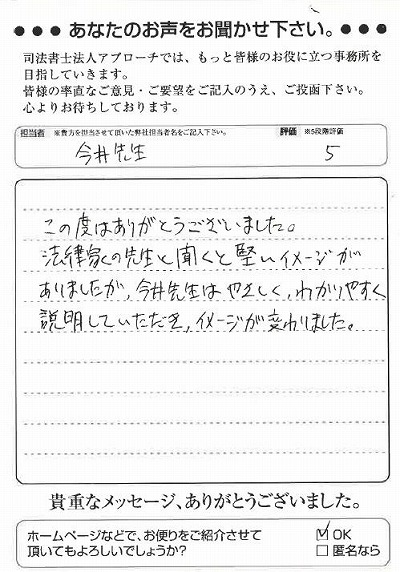 ●●●あなたのお声をお聞かせ下さい。●●●
司法書士法人アプローチでは、もっと皆様のお役に立つ事務所を
目指していきます。
皆様の率直なご意見・ご要望をご記入のうえ、ご投函下さい。
心よりお待ちしております。
担当者 ※貴方を担当させて頂いた弊社担当者名をご記入下さい。 評価 ※5段階評価
今井先生 5
この度はありがとうございました。
法律家の先生と聞くと堅いイメージが
ありましたが、今井先生はやさしく、わかりやすく
説明していただき、イメージが変わりました。
貴重なメッセージ、ありがとうございました。
ホームページなどで、お便りをご紹介させて
頂いてもよろしいでしょうか?
☑OK
□匿名なら